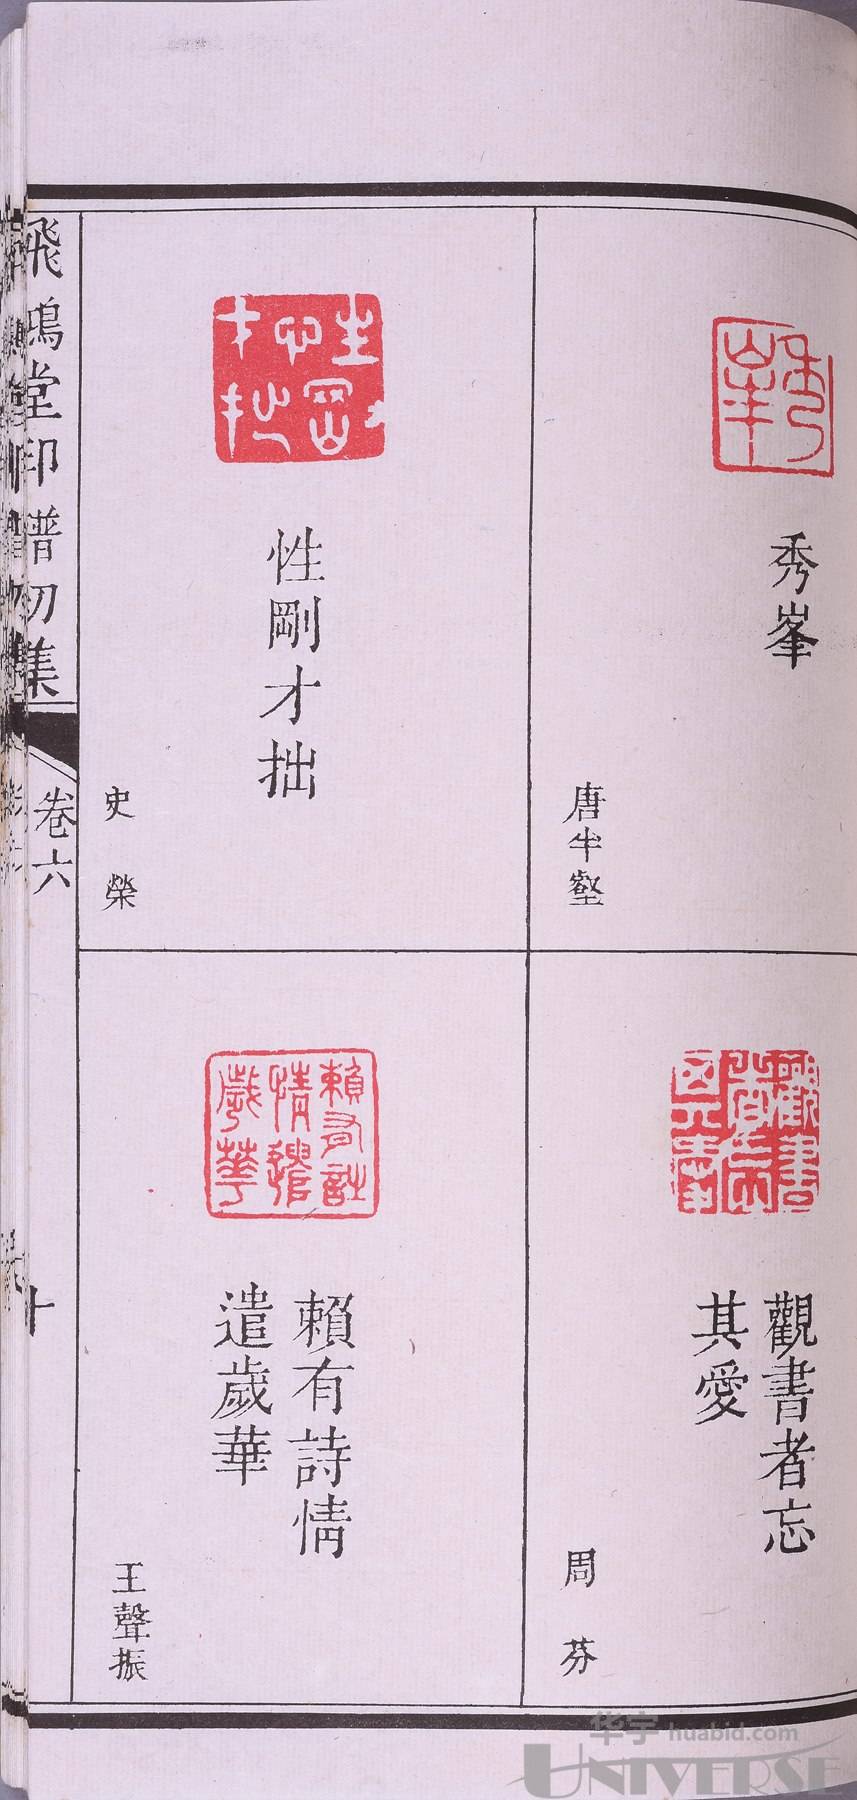 秀峯
唐半壑
觀書者忘
其愛
周芬
性剛才拙
史榮
賴有詩情
遣歲華
王聲振
飛鴻堂印譜初集
卷六
十
华宇 huabid.com
UNIVERSE